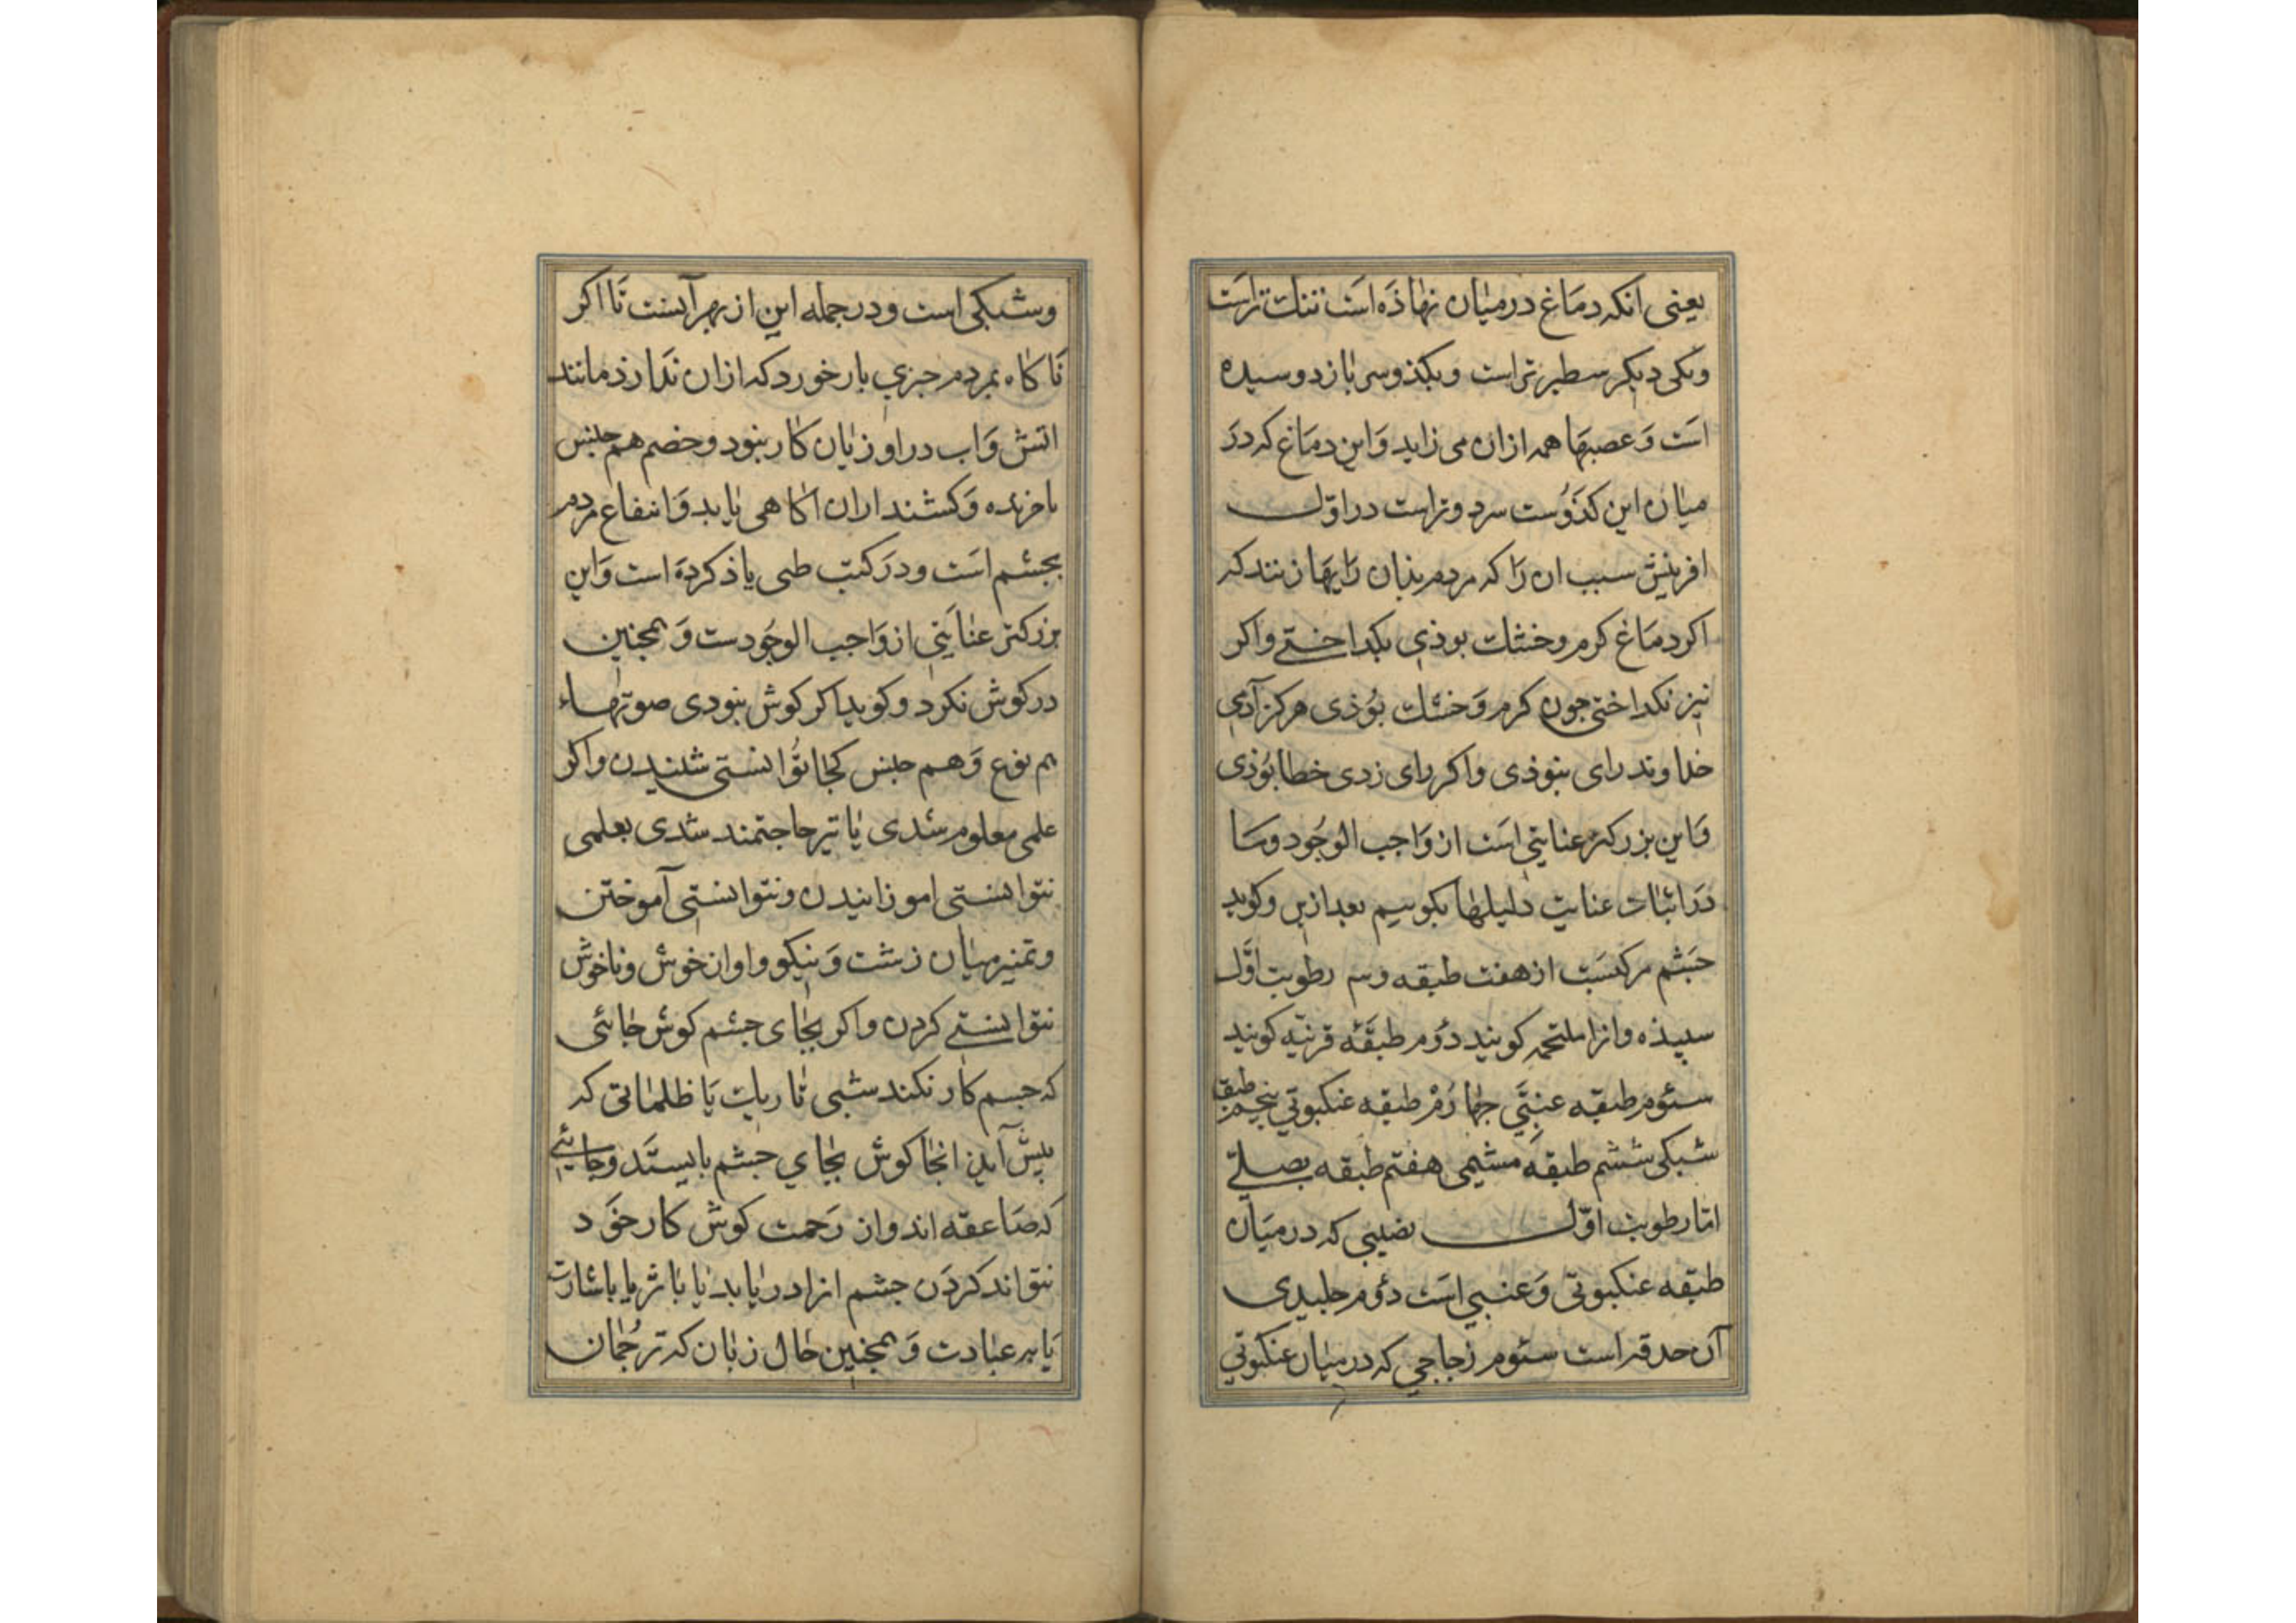 یعنی انکه دمَاغ در میٰان نهٰاذَه اسَت تنك تراسَت
ویکی دیکر سطبرتر است وبکذوسی بٰاز دوسیده
اسَت وَعصبهَا همه ازان می زاید وَاین دمَاغ که درَ
میٰان این کذوُست سرد وتراست در اوّل
افرینش سبب ان رَا که مردم بذان رَایهَا زنند که
اکر دمَاغ کرم وخشك بوذی بکداختے واکر
نیز نکداختی جون کرم وَخشك بوُذی هرکز آدمی
خداوند رای نبوذی واکر رای زدی خطا بوُذی
وَاین بزرکتر عنایتی اسَت از وَاجب الوجُود ومَا
درَ اثبٰات عنایت دلیلهٰا بکوییم بعد ازین وکوید
جَشم مرکبسَت از هفت طبقه وسه رطوبت اوَّل
سپیذه وانرا ملتحمه کویند دوُم طبقَه قرنیّه کویند
سئوم طبقه عنبیَّ جهٰارُمْ طبقه عنکبوتی پنجم طبقه
شبکی ششم طبقَه مَشیمی هفتم طبقه بصلےّ
امّا رطوبت اوّل بضیبی که در میَان
طبقه عنکبوتی وَعنبی اسَت دوُم جلیدی
آن حدقه است سئوم زجاجی که در میٰان عنکبوتی
وشبکی است ودر جمله این از بهر آنست تَا اکر
نَاکٰاه بمردم جیزی بازخورد که ازان ندٰارذ مانند
اتش وَاب در او زیٰان کٰار نبود وخصم هم جنس
با خزنده وَکشنده ازان اکٰاهی یٰابد وَانتفاع مردم
بجشم اسَت ودرَ کتب طبی یاذ کردَه است وَاین
بزرکتر عنایَتی از وَاجب الوجُودست وَهمجنین
در کوش نکرد وکوید اکر کوش نبودی صوتهٰاء
هم نوع وَهم جنس کجا توُانستی شنیدن واکر
علمی معلوم شدی یٰا نیز حاجتمند شدی بعلمی
نتوانستی اموزانیدن ونتوانستی آموختن
وتمیز میٰان زشت وَنیکو واوان خوش وناخوش
نتوانستے کردن واکر بجٰای جشم کوش جٰائی
که جسم کار نکند شبی تٰاریك یَا ظلمٰاتی که
پیش آید انجٰا کوش بجٰای جشم بایستَد وجائیے
که صَاعقه اند وان رَحمت کوش کار خوَد
نتواند کردَن جشم انرا دریٰابد یٰا بَاثر یا باشارت
یَا به عبٰادت وَهمجنین حٰال زبٰان که ترجُمٰان